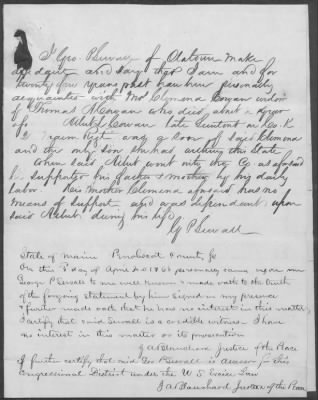 I Geo. P. Sewall of Oldtown make
affidavit and say that I am and for
twenty five years past have been personally
acquainted with Mrs Clymena Cowan widow
of Thomas A Cowan who died about a year
ago. Albert Cowan late Lieutenant in Co. K
Maine Regt was a son of said Clymena
and the only son she had within this State
when said Albert went into the Co. as aforesaid
he supported his father & mother by his daily
labor. His mother Clymena aforesaid has no
means of support and was dependent upon
said Albert during his life
G P Sewall
State of Maine Penobscot County, ss
On this day of April AD 1863 personally came before me
George P Sewall to me well known & made oath to the truth
of the foregoing statement by him signed in my presence
& further made oath that he has no interest in this matter;
I certify that said Sewall is a credible witness. I have
no interest in this matter or its prosecution
J A Blanchard Justice of the Peace
I further certify that said Geo P Sewall is assessor for this
Congressional District under the U S Excise Law
J A Blanchard Justice of the Peace